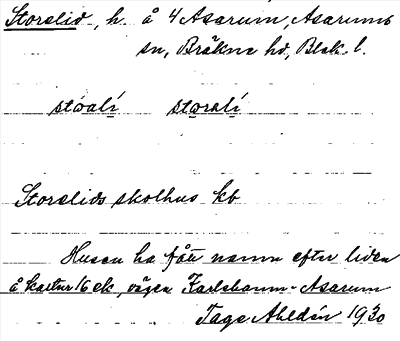 Storelid, h. å 4 Asarum, Asarums
sn, Bräkne hd, Blek. l.
stóalí storalí
Storelids skolhus kb
Husen ha fått namn efter liden
å kartur 16 ek, vägen Karlshamn-Asarum
Tage Ahldén 1930